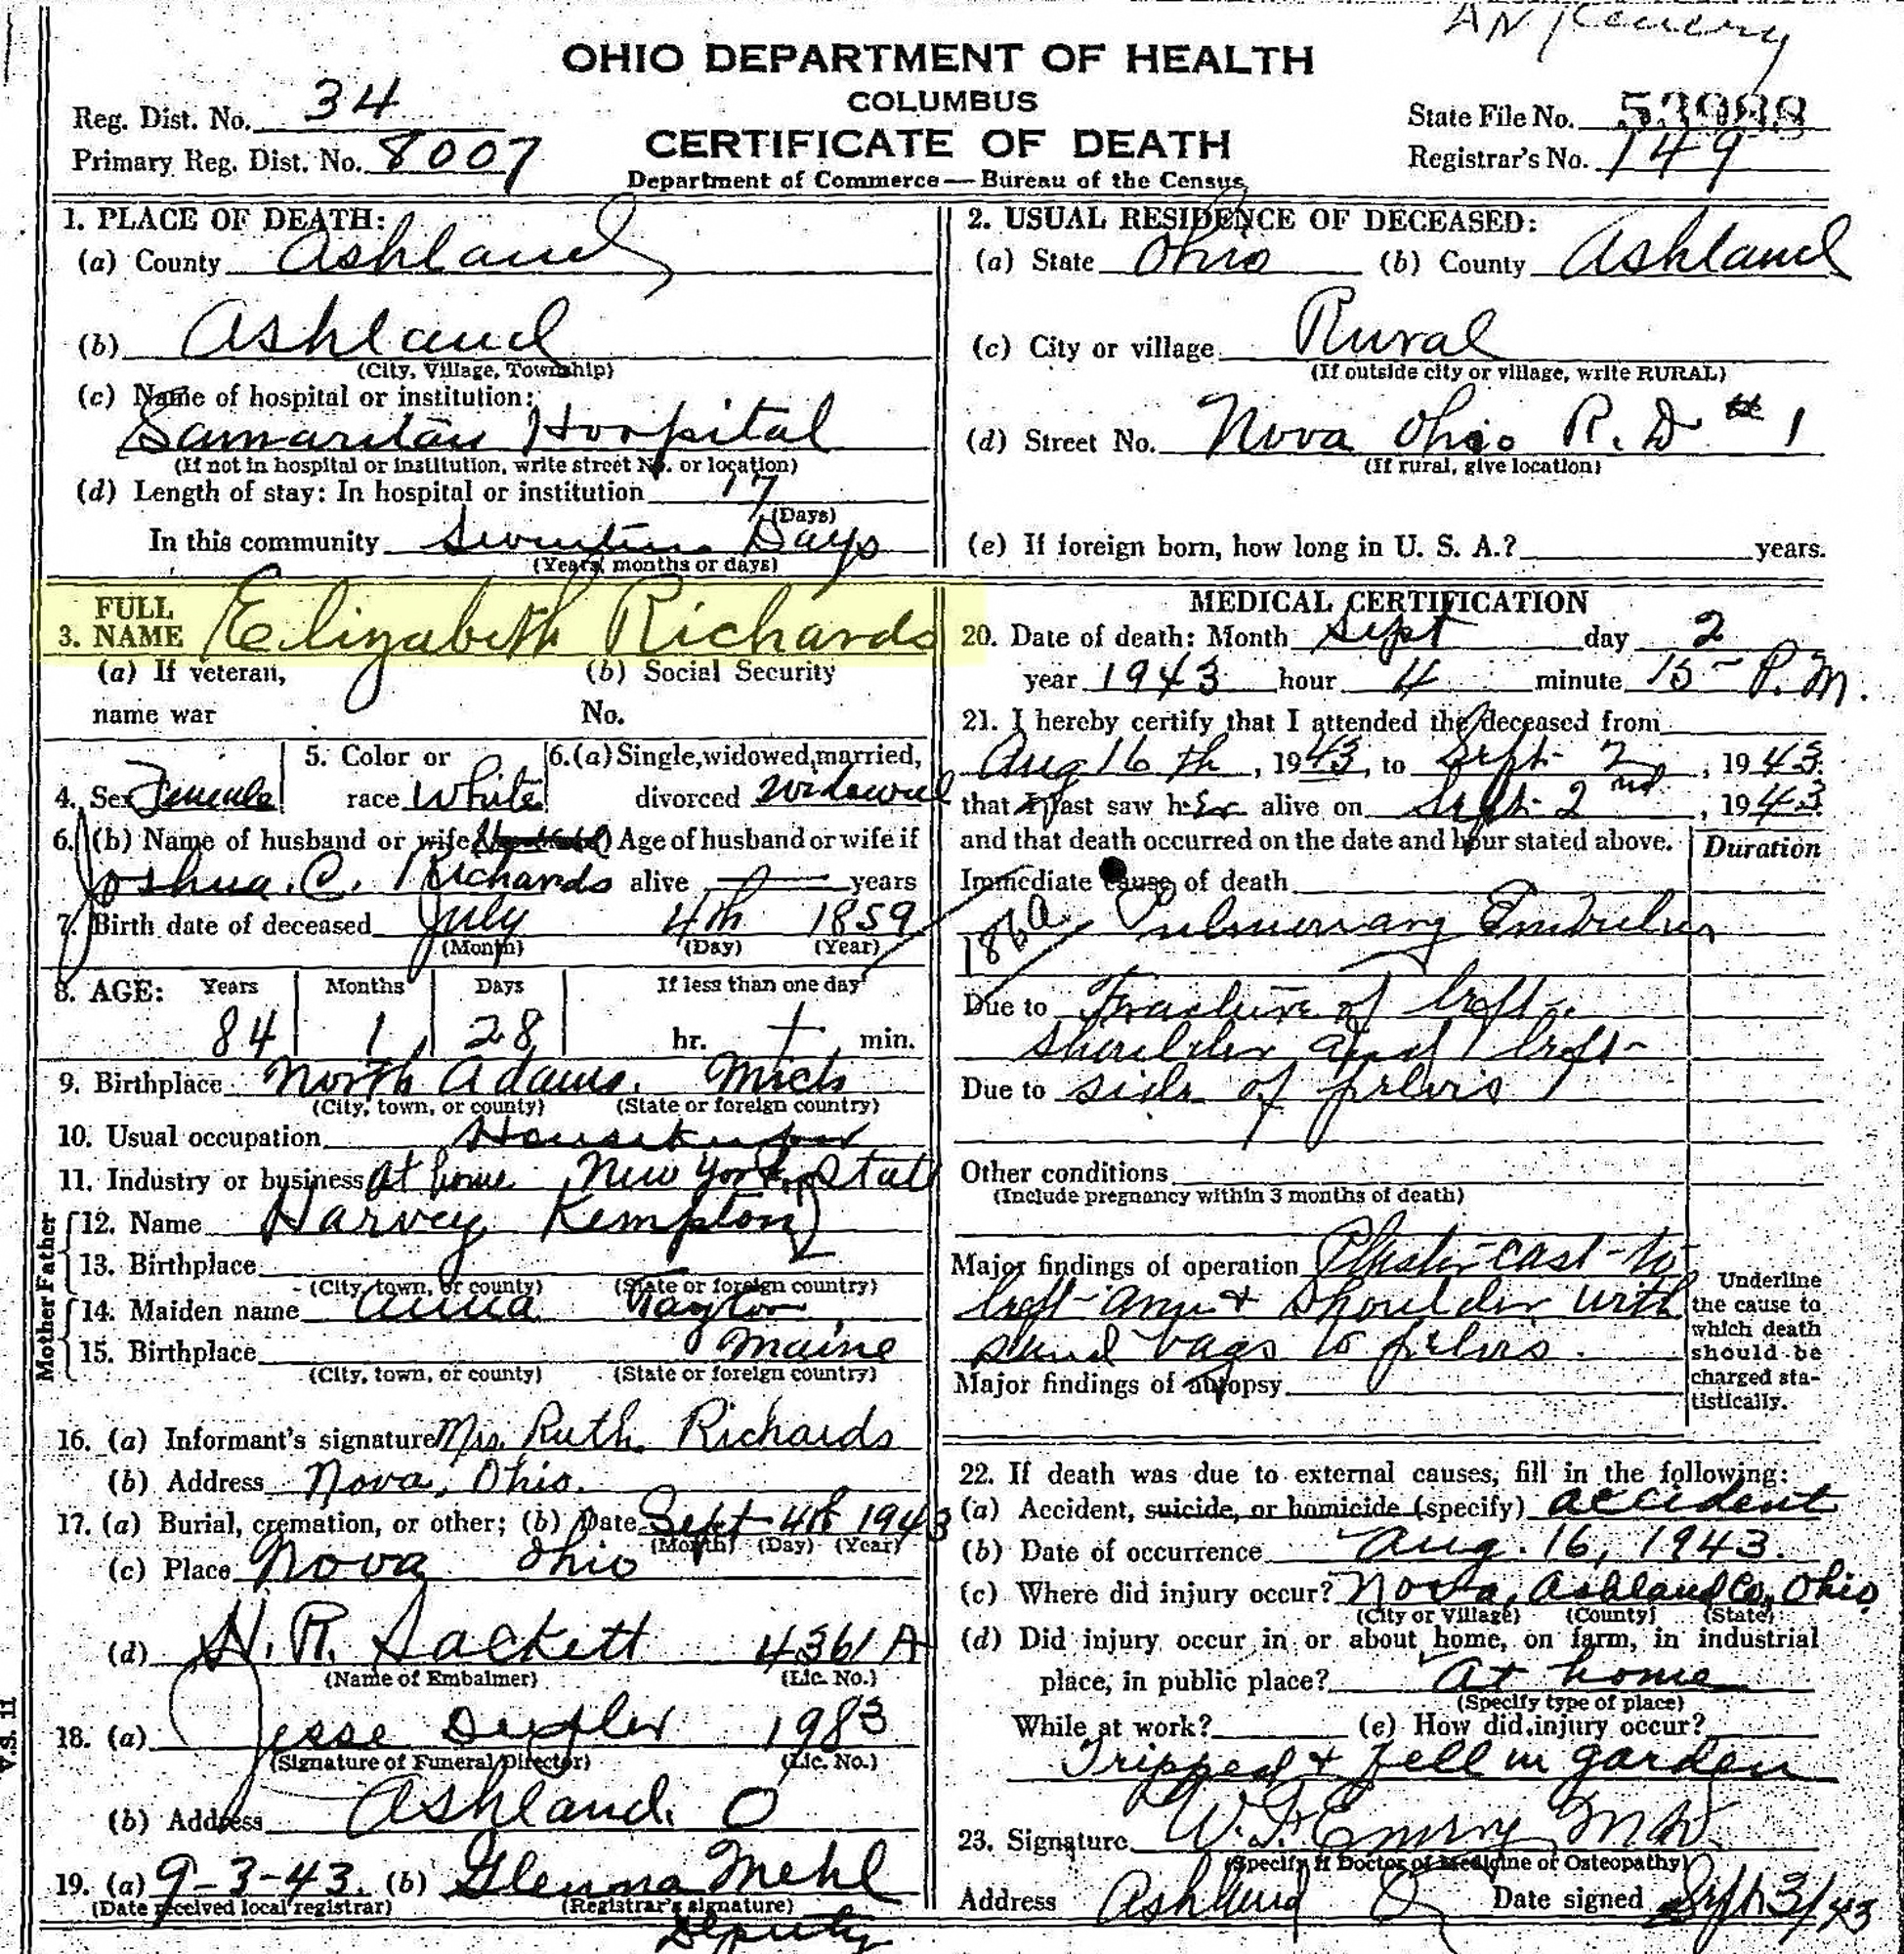 OHIO DEPARTMENT OF HEALTH
COLUMBUS
CERTIFICATE OF DEATH
Department of Commerce—Bureau of the Census
Reg. Dist. No. 34
Primary Reg. Dist. No. 8007
State File No.
Registrar's No. 149
1. PLACE OF DEATH:
(a) County Ashland
(b) Ashland
(City, Village, Township)
(c) Name of hospital or institution:
Samaritan Hospital
(If not in hospital or institution, write street No. or location)
(d) Length of stay: In hospital or institution 17
(Days)
In this community Seventeen Days
(Years, months or days)
2. USUAL RESIDENCE OF DECEASED:
(a) State Ohio (b) County Ashland
(c) City or village Rural
(If outside city or village, write RURAL)
(d) Street No. Nova Ohio R. D # 1
(If rural, give location)
(e) If foreign born, how long in U. S. A.? years.
3. FULL NAME Elizabeth Richards
(a) If veteran, (b) Social Security
name war No.
4. Sex Female 5. Color or race White 6. (a) Single, widowed, married, divorced Widowed
6. (b) Name of husband or wife Age of husband or wife if
Joshua. C. Richards alive — years
7. Birth date of deceased July 4th 1859
(Month) (Day) (Year)
8. AGE: Years Months Days If less than one day
84 1 28 hr. min.
9. Birthplace North Adams. Mich
(City, town, or county) (State or foreign country)
10. Usual occupation Housekeeper
11. Industry or business At home New York State
Father
12. Name Harvey Kempton
13. Birthplace
(City, town, or county) (State or foreign country)
Mother
14. Maiden name Anna Taylor
15. Birthplace Maine
(City, town, or county) (State or foreign country)
16. (a) Informant's signature Mrs. Ruth Richards
(b) Address Nova, Ohio.
17. (a) Burial, cremation, or other; (b) Date Sept 4th 1943
(Month) (Day) (Year)
(c) Place Nova Ohio
(d) H. R. Sackett 4361 A
(Name of Embalmer) (Lic. No.)
18. (a) Jesse 1983
(Signature of Funeral Director) (Lic. No.)
(b) Address Ashland. O
19. (a) 9-3-43. (b) Glenna Mehl
(Date received local registrar) (Registrar's signature)
Deputy
V.S. 11
MEDICAL CERTIFICATION
20. Date of death: Month Sept day 2
year 1943 hour 4 minute 15 P.M.
21. I hereby certify that I attended the deceased from
Aug 16 th, 1943, to Sept. 2, 1943
that I last saw her alive on Sept. 2 nd, 1943
and that death occurred on the date and hour stated above. Duration
Immediate cause of death
186a Pulmonary Embolus
Due to Fracture of left
shoulder and left
Due to side of pelvis
Other conditions
(Include pregnancy within 3 months of death)
Major findings of operation Plaster cast to
left arm & shoulder with
sand bags to pelvis.
Major findings of autopsy
Underline the cause to which death should be charged statistically.
22. If death was due to external causes, fill in the following:
(a) Accident, suicide, or homicide (specify) accident
(b) Date of occurrence Aug. 16, 1943.
(c) Where did injury occur? Nova, Ashland Co, Ohio
(City or Village) (County) (State)
(d) Did injury occur in or about home, on farm, in industrial
place, in public place? At home
(Specify type of place)
While at work? (e) How did injury occur?
Tripped & fell in garden
23. Signature W. Emery M D.
(Specify if Doctor of Medicine or Osteopathy)
Address Ashland O Date signed Sept 3/43